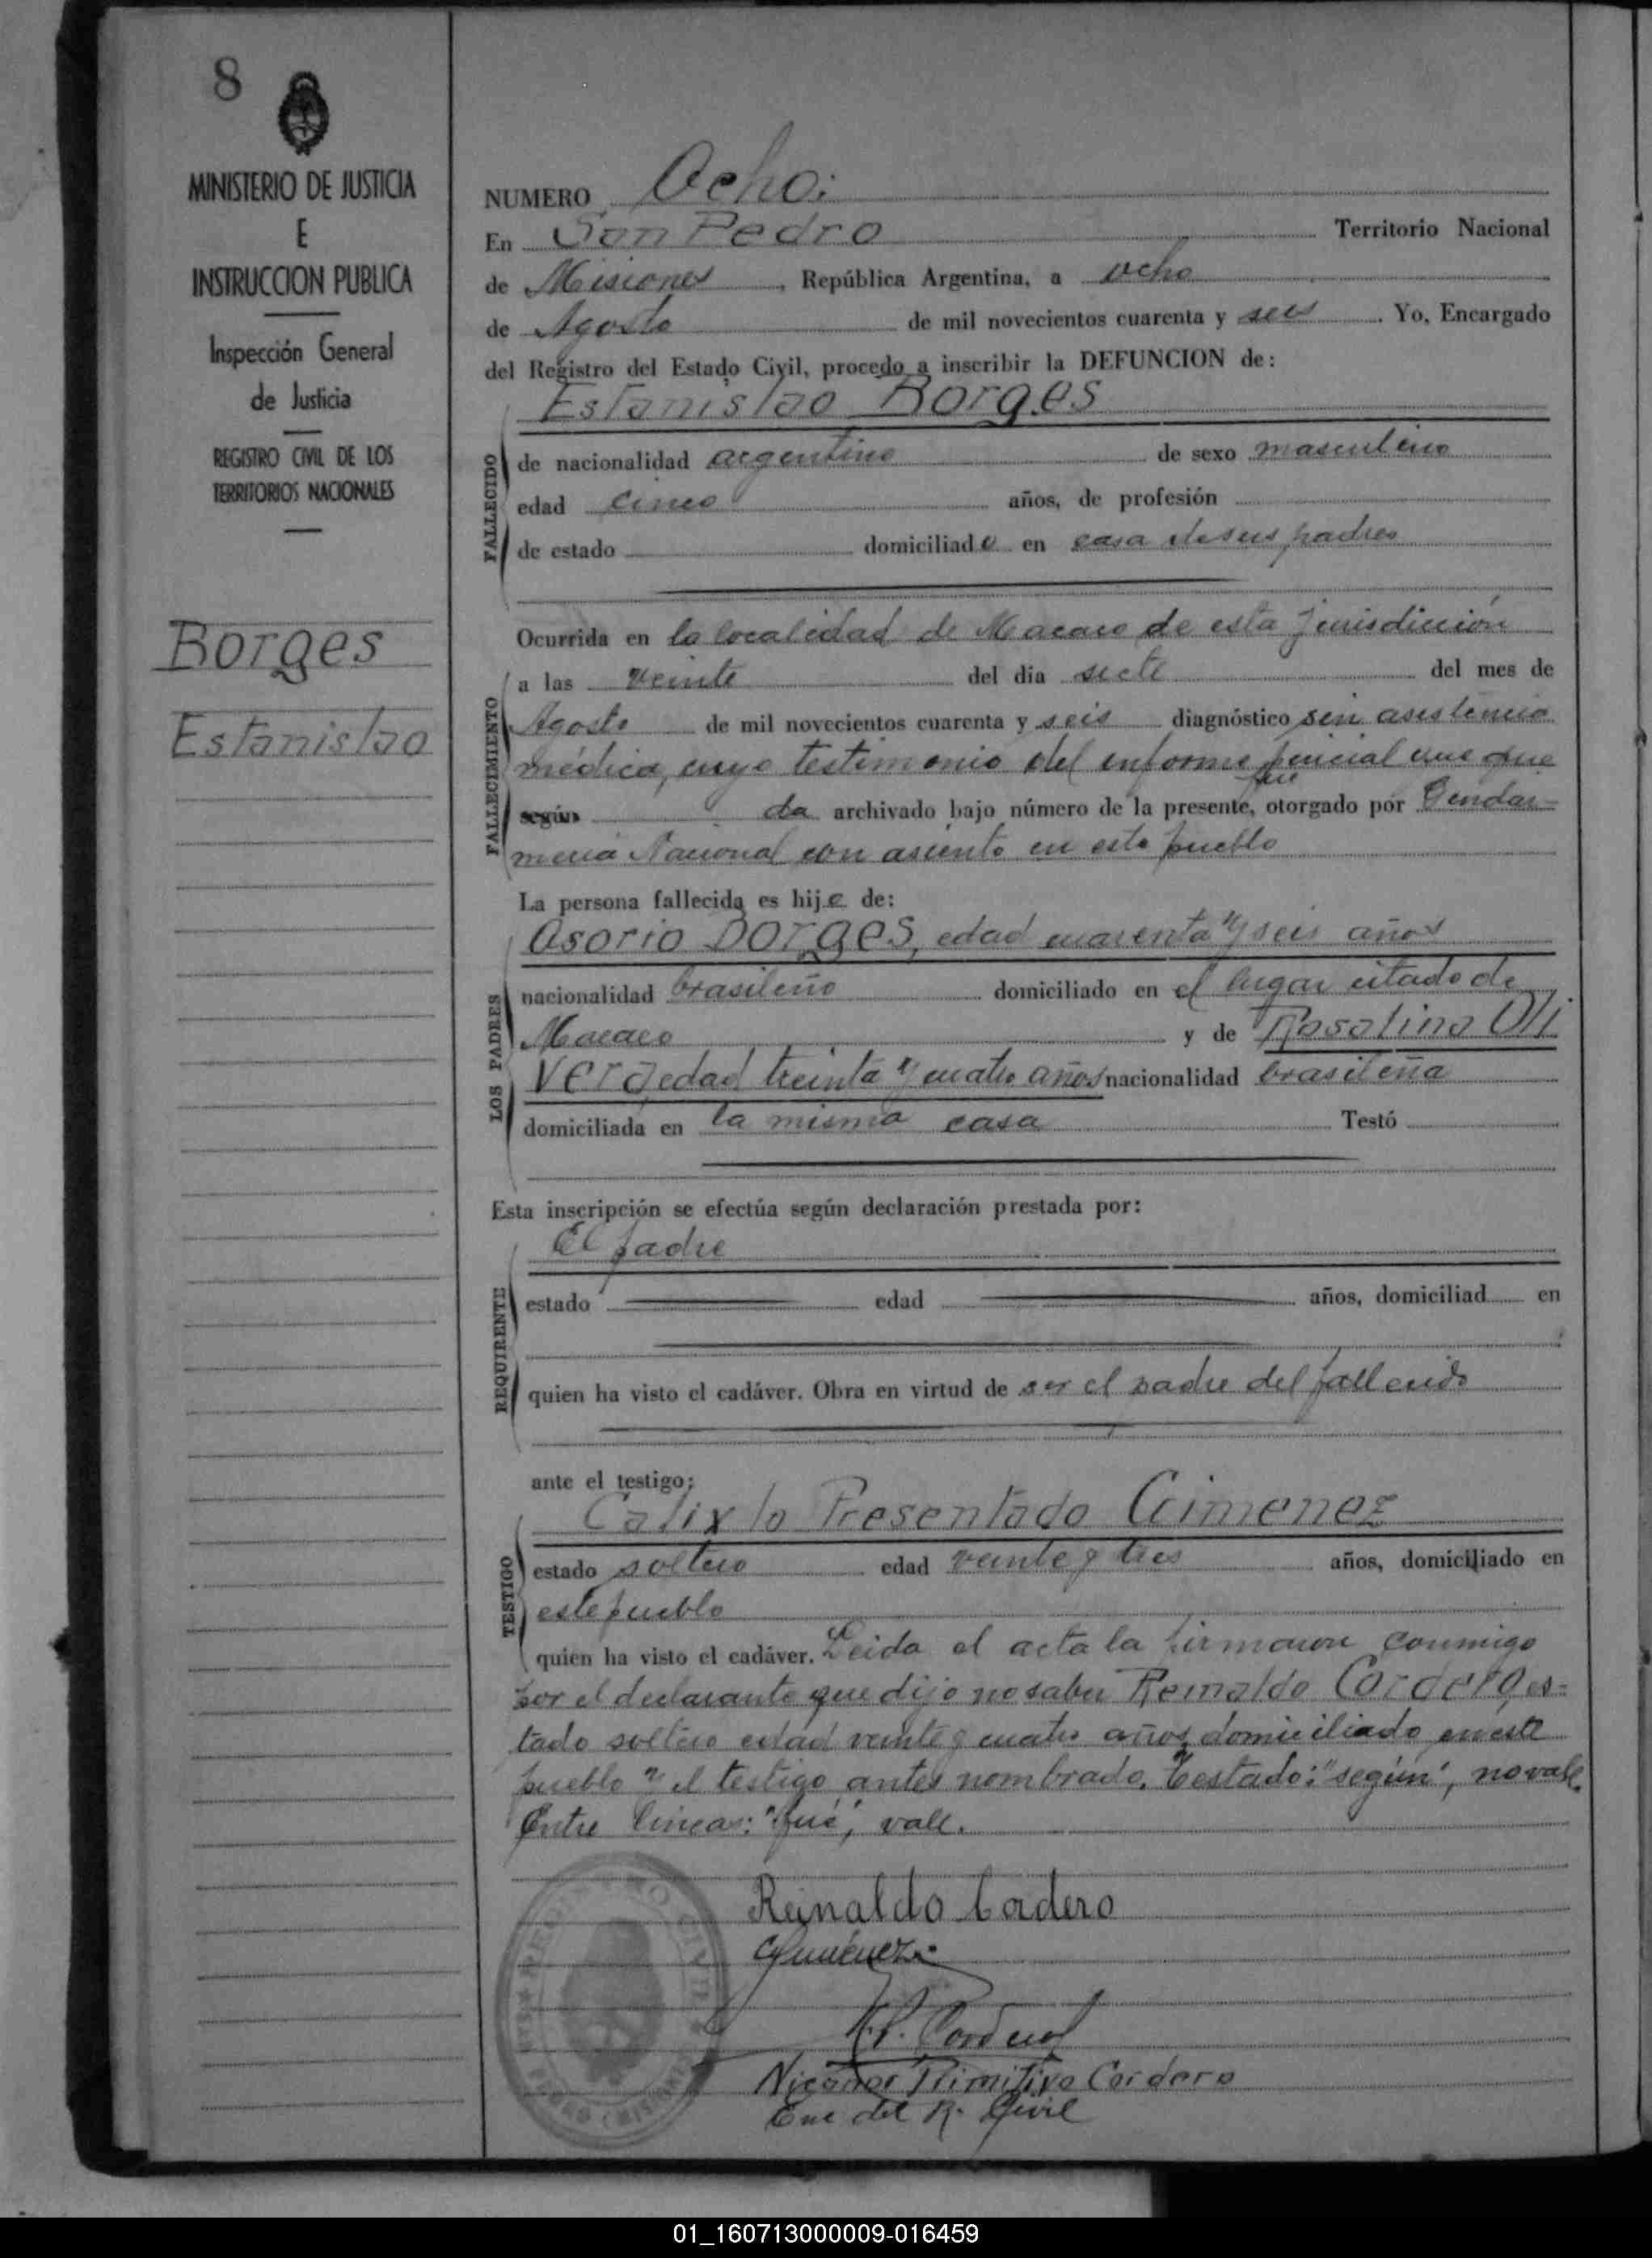 8
MINISTERIO DE JUSTICIA
E
INSTRUCCION PUBLICA
Inspección General
de Justicia
REGISTRO CIVIL DE LOS
TERRITORIOS NACIONALES
Borges
Estanislao
NUMERO Ocho:
En San Pedro Territorio Nacional
de Misiones, República Argentina, a ocho
de Agosto de mil novecientos cuarenta y seis. Yo, Encargado
del Registro del Estado Civil, procedo a inscribir la DEFUNCION de:
Estanislao Borges
FALLECIDO
de nacionalidad argentino de sexo masculino
edad cinco años, de profesión
de estado domiciliado en casa de sus padres
Ocurrida en la localidad de Macaco de esta jurisdicción
FALLECIMIENTO
a las veinte del día siete del mes de
Agosto de mil novecientos cuarenta y seis diagnóstico sin asistencia
médica, cuyo testimonio del informe que
fué
según da archivado bajo número de la presente, otorgado por Gendar-
meria Nacional con asiento en este pueblo
La persona fallecida es hijo de:
LOS PADRES
Asorio Borges, edad cuarenta y seis años
nacionalidad brasileño domiciliado en el lugar citado de
Macaco y de Rosalina Oli
vera edad treinta y cuatro años nacionalidad brasileña
domiciliada en la misma casa Testó
Esta inscripción se efectúa según declaración prestada por:
REQUIRENTE
El padre
estado edad años, domiciliad en
quien ha visto el cadáver. Obra en virtud de ser el padre del fallecido
ante el testigo:
TESTIGO
Calixto Presentado Gimenez
estado soltero edad veinte y tres años, domiciliado en
este pueblo
quien ha visto el cadáver. Leida el acta la firmaron conmigo
por el declarante que dijo no saber Reinaldo Cordero es-
tado soltero edad veinte y cuatro años domiciliado en este
pueblo y el testigo antes nombrado. Testado: "según", no vale.
Entre lineas: "fué", vale.
Reinaldo Cordero
CGimenez
N.P. Cordero
Nicanor Primitivo Cordero
Enc del R. Civil
01_160713000009-016459